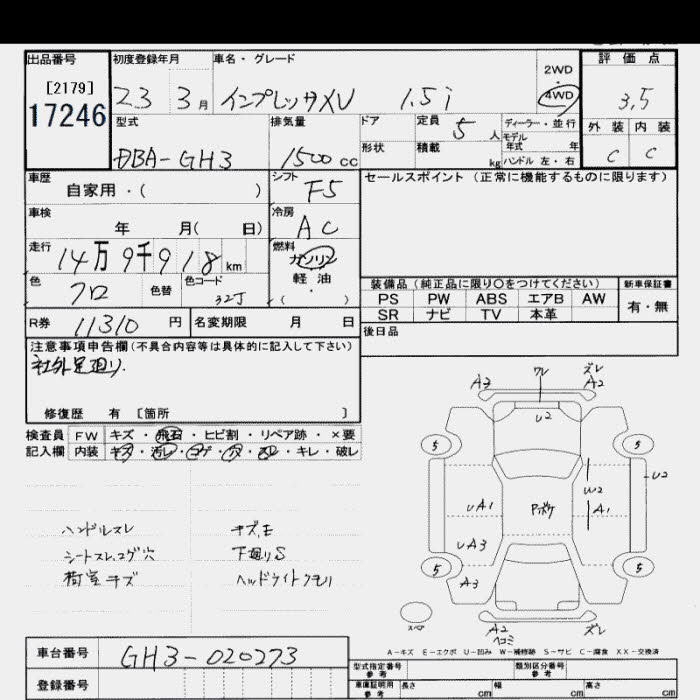 出品番号 初度登録年月 車名・グレード 評価点
[2179] 2WD
17246 23 3月 インプレッサXV 1.5i 4WD 3.5
型式 排気量 ドア 定員 5人 ディーラー・並行 外装 内装
モデル
DBA-GH3 1500cc 形状 積載 kg 年式 年 C C
ハンドル 左・右
車歴 シフト F5 セールスポイント(正常に機能するものに限ります)
自家用・( )
車検 冷房 AC
年 月( 日)
走行 14万9千918km 燃料 ガソリン
軽油
( )
色 クロ 色替 色コード 32J
装備品(純正品に限り〇をつけてください) 新車保証書
PS PW ABS エアB AW 有・無
SR ナビ TV 本革
R券 11310円 名変期限 月 日 後日品
注意事項申告欄(不具合内容等は具体的に記入して下さい)
社外足廻り.
修復歴 有 [箇所 ]
検査員 FW キズ・飛石・ヒビ割・リペア跡・×要
記入欄 内装 キズ・汚レ・コゲ・穴・スレ・キレ・破レ
A3 ワレ ズレ A2
U2
5 5
U2
W2
UA1 Pボケ A1
UA3
5 5
A3
スペア A2 ヘコミ ズレ
ハンドルスレ キズ,E
シートスレ,コゲ穴 下廻りS
荷室キズ ヘッドライトクモリ
A-キズ E-エクボ U-凹み W-補修跡 S-サビ C-腐食 XX-交換済
車台番号 GH3-020273
型式指定番号 参考 類別区分番号 参考
登録番号
車庫証明用 参考 長さ cm 幅 cm 高さ cm